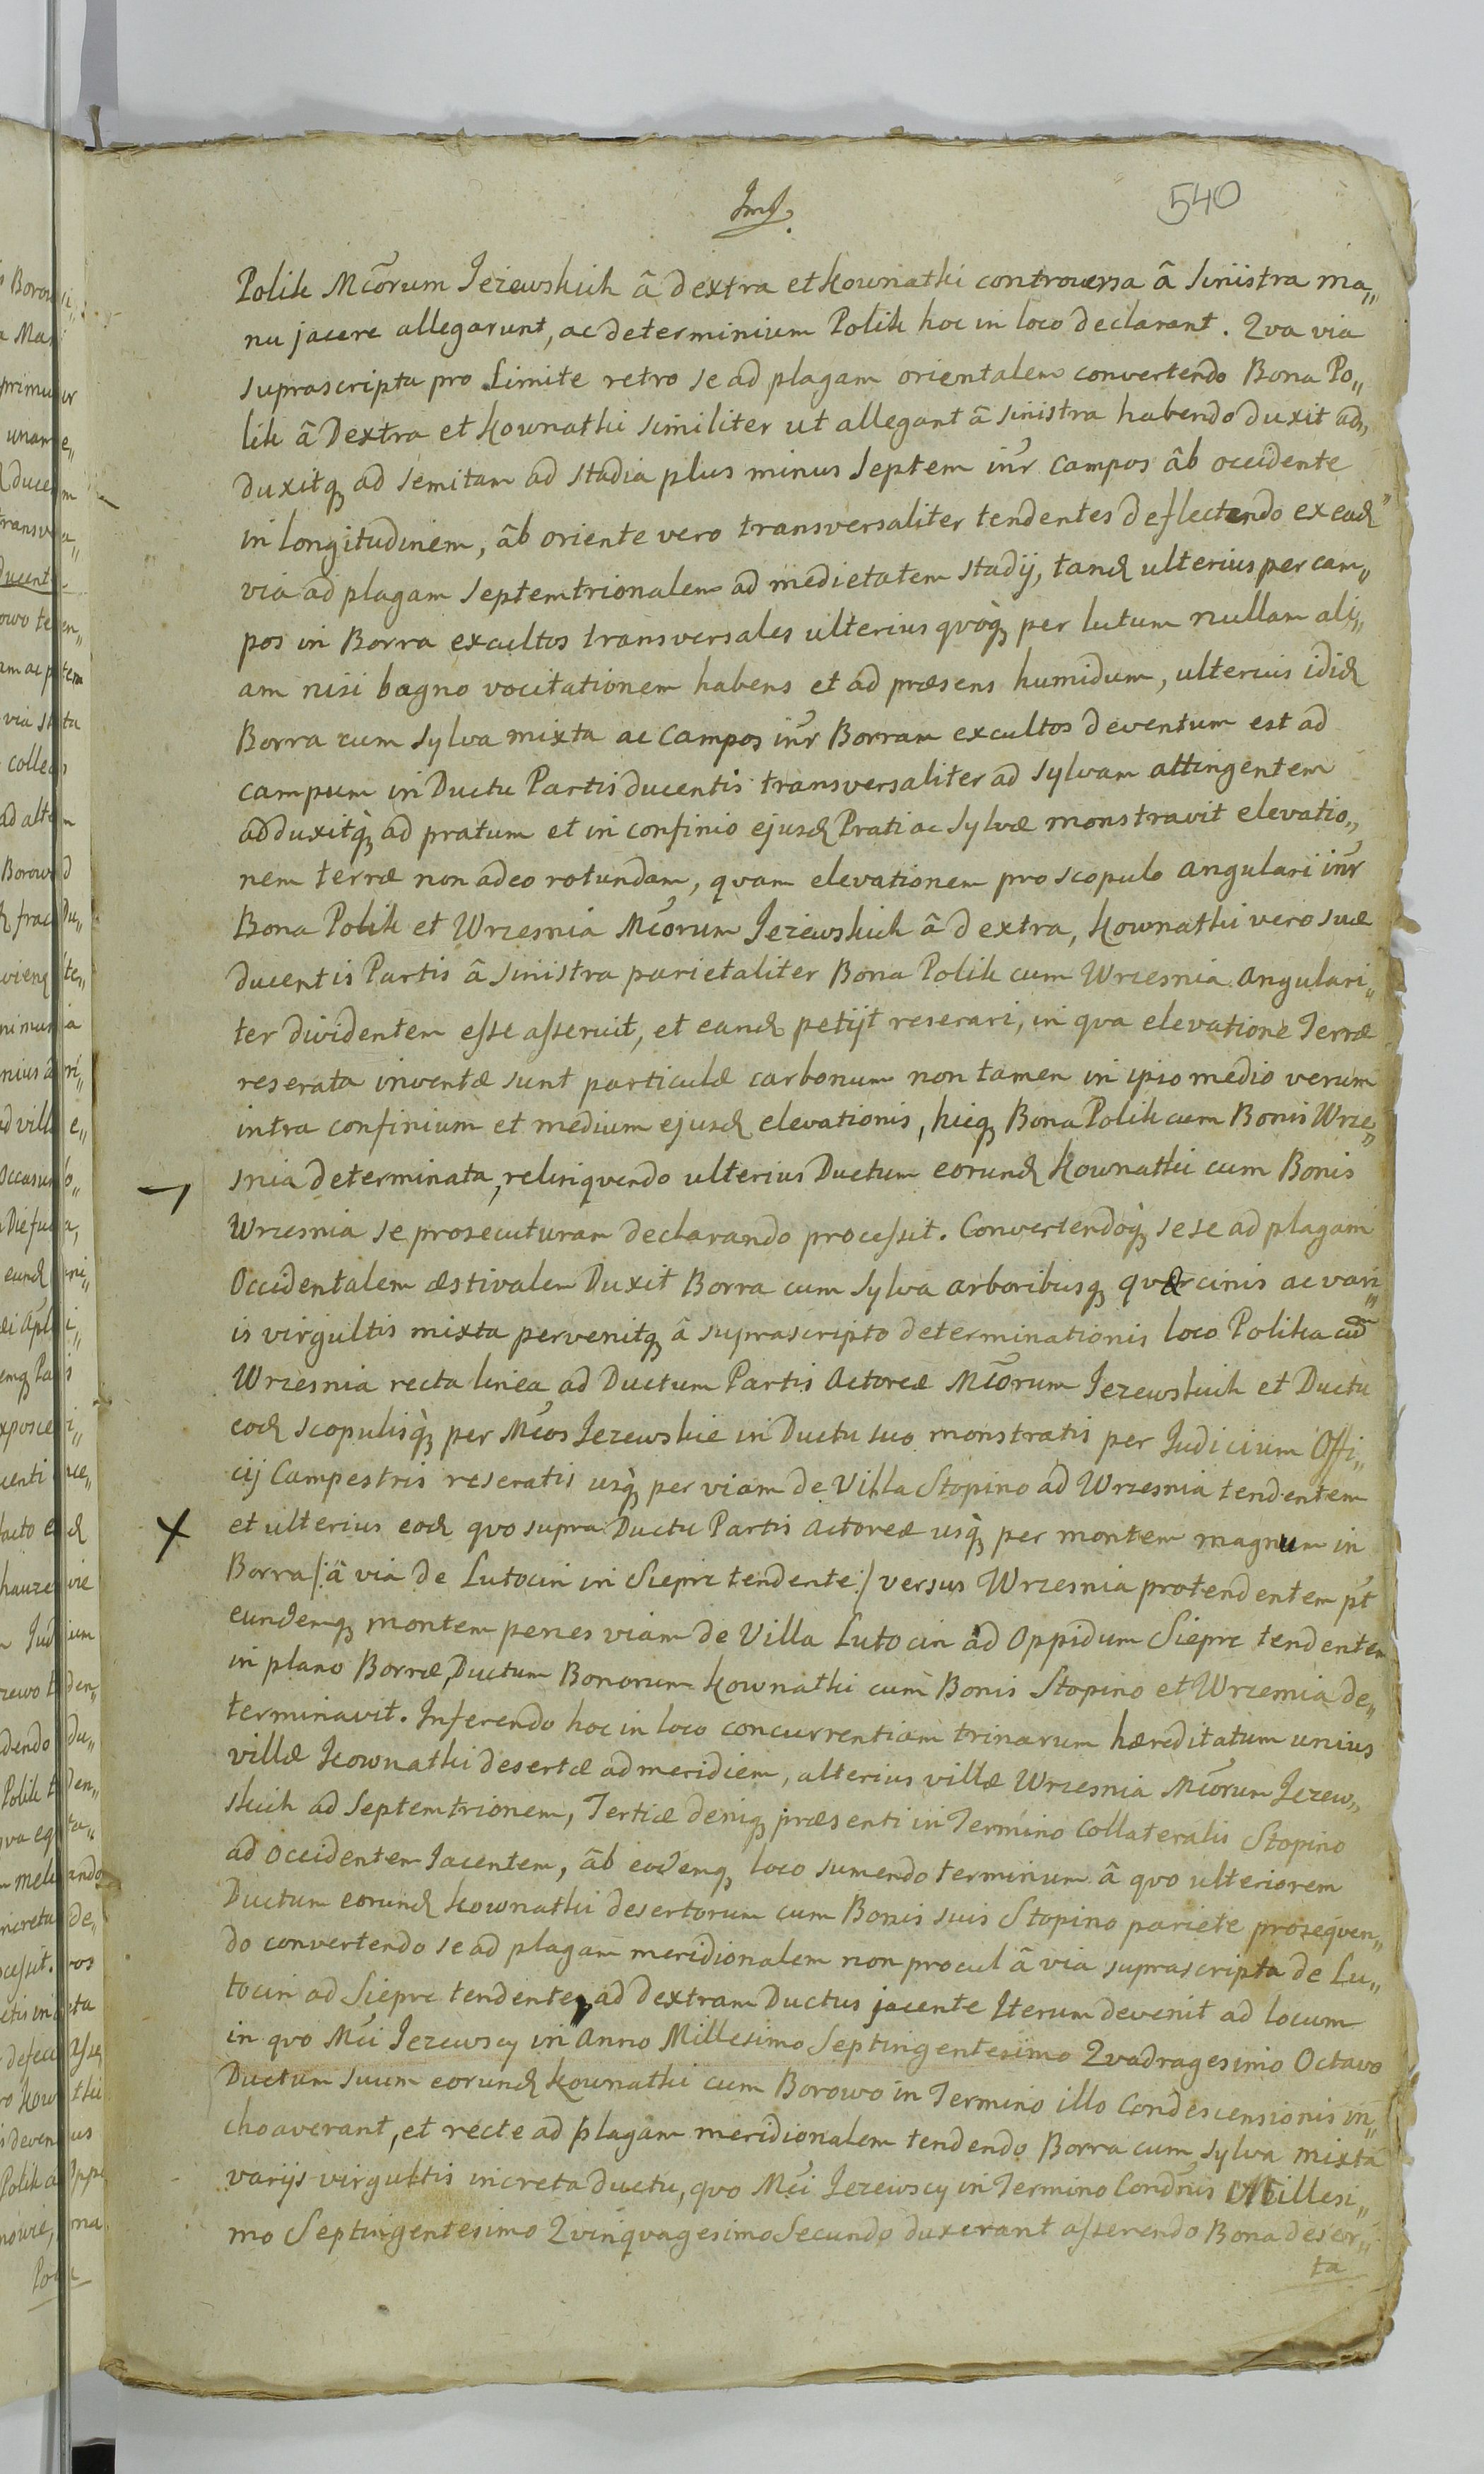 540
Polik Mcorum Jezewskich â dextra et Kownatki controversa â sinistra ma„
nu jacere allegarunt, ac determinium Polik hoc in loco declarant. Qva via
suprascripta pro Limite retro se ad plagam orientalem convertendo Bona Po„
lik â Dextra et Kownatki similiter ut allegant â sinistra habendo duxit ad„
duxitq, ad semitam ad stadia plus minus septem inr campos âb occidente
in longitudinem, âb oriente vero transversaliter tendentes deflectendo ex ead
via ad plagam septemtrionalem ad medietatem stadij, tand ulterius per cam„
pos in Borra excultos transversales ulterius qvoq, per lutum nullam ali„
am nisi bagno vocitationem habens et ad præsens humidum, ulterius ibid
Borra cum sylva mixta ac Campos inr Borram excultos deventum est ad
campum in Ductu Partis ducentis transversaliter ad sylvam attingentem
adduxitq, ad pratum et in confinio ejusd Prati ac Sylvæ monstravit elevatio„
nem terræ non adeo rotundam, qvam elevationem pro scopulo angulari inr
Bona Polik et Wrzesnia Mcorum Jezewskich â dextra, Kownatki vero suæ
ducentis Partis â sinistra parietaliter Bona Polik cum Wrzesnia angulari„
ter dividentem esse asseruit, et eand petijt reserari, in qva elevatione Terræ
reserata inventæ sunt particulæ carbonum non tamen in ipso medio verum
intra confinium et medium ejusd elevationis, hicq, Bona Polik cum Bonis Wrze„
snia determinata, relinqvendo ulterius Ductum eorund Kownatki cum Bonis
Wrzesnia se prosecuturam declarando processit. Convertendoq, sese ad plagam
Occidentalem æstivalem Duxit Borra cum Sylva arboribusq, qvercinis ac vari„
is virgultis mixta pervenitq, â suprascripto determinationis loco Polika cum
Wrzesnia recta linea, ad Ductum Partis Actoreæ Mcorum Jezewskich et Ductu
eod scopulisq, per Mcos Jezewskie in Ductu suo monstratis per Judicium Offi„
cij Campestris reseratis usq, per viam de Villa Stopino ad Wrzesnia tendentem
et ulterius eod qvo supra Ductu Partis Actoreæ usq, per montem magnum in
Borra /: â via de Lutocin in Sieprc tendente :/ versus Wrzesnia protendentem pt
eundemq, montem penes viam de Villa Lutocin ad Oppidum Sieprc tendentem
in plano Borræ, Ductum Bonorum Kownatki cum Bonis Stopino et Wrzesnia de„
terminavit. Inferendo hoc in loco concurrentiam trinarum hæreditatum unius
villæ Kownatki desertæ ad meridiem, alterius villæ Wrzesnia Mcorum Jezew„
skich ad Septemtrionem, Tertiæ deniq, præsenti in Termino Collateralis Stopino
ad occidentem Jacentem, âb eodemq, loco sumendo terminum â qvo ulteriorem
Ductum eorund Kownatki desertorum cum Bonis suis Stopino pariete proseqven„
do convertendo se ad plagam meridionalem non procul â via suprascripta de Lu„
tocin ad Sieprc tendente, ad dextram Ductus jacente Iterum devenit ad locum
in qvo Mci Jezewscy in Anno Millesimo Septingentesimo Qvadragesimo Octavo
Ductum suum eorund Kownatki cum Borowo in Termino illo Condescensionis in„
choaverant, et recte ad plagam meridionalem tendendo Borra cum sylva mixta
varijs virgultis increta ductu, qvo Mci Jezewscy in Termino Condnis Millesi„
mo Septingentesimo Qvinqvagesimo Secundo duxerant asserendo Bona deser„
ta